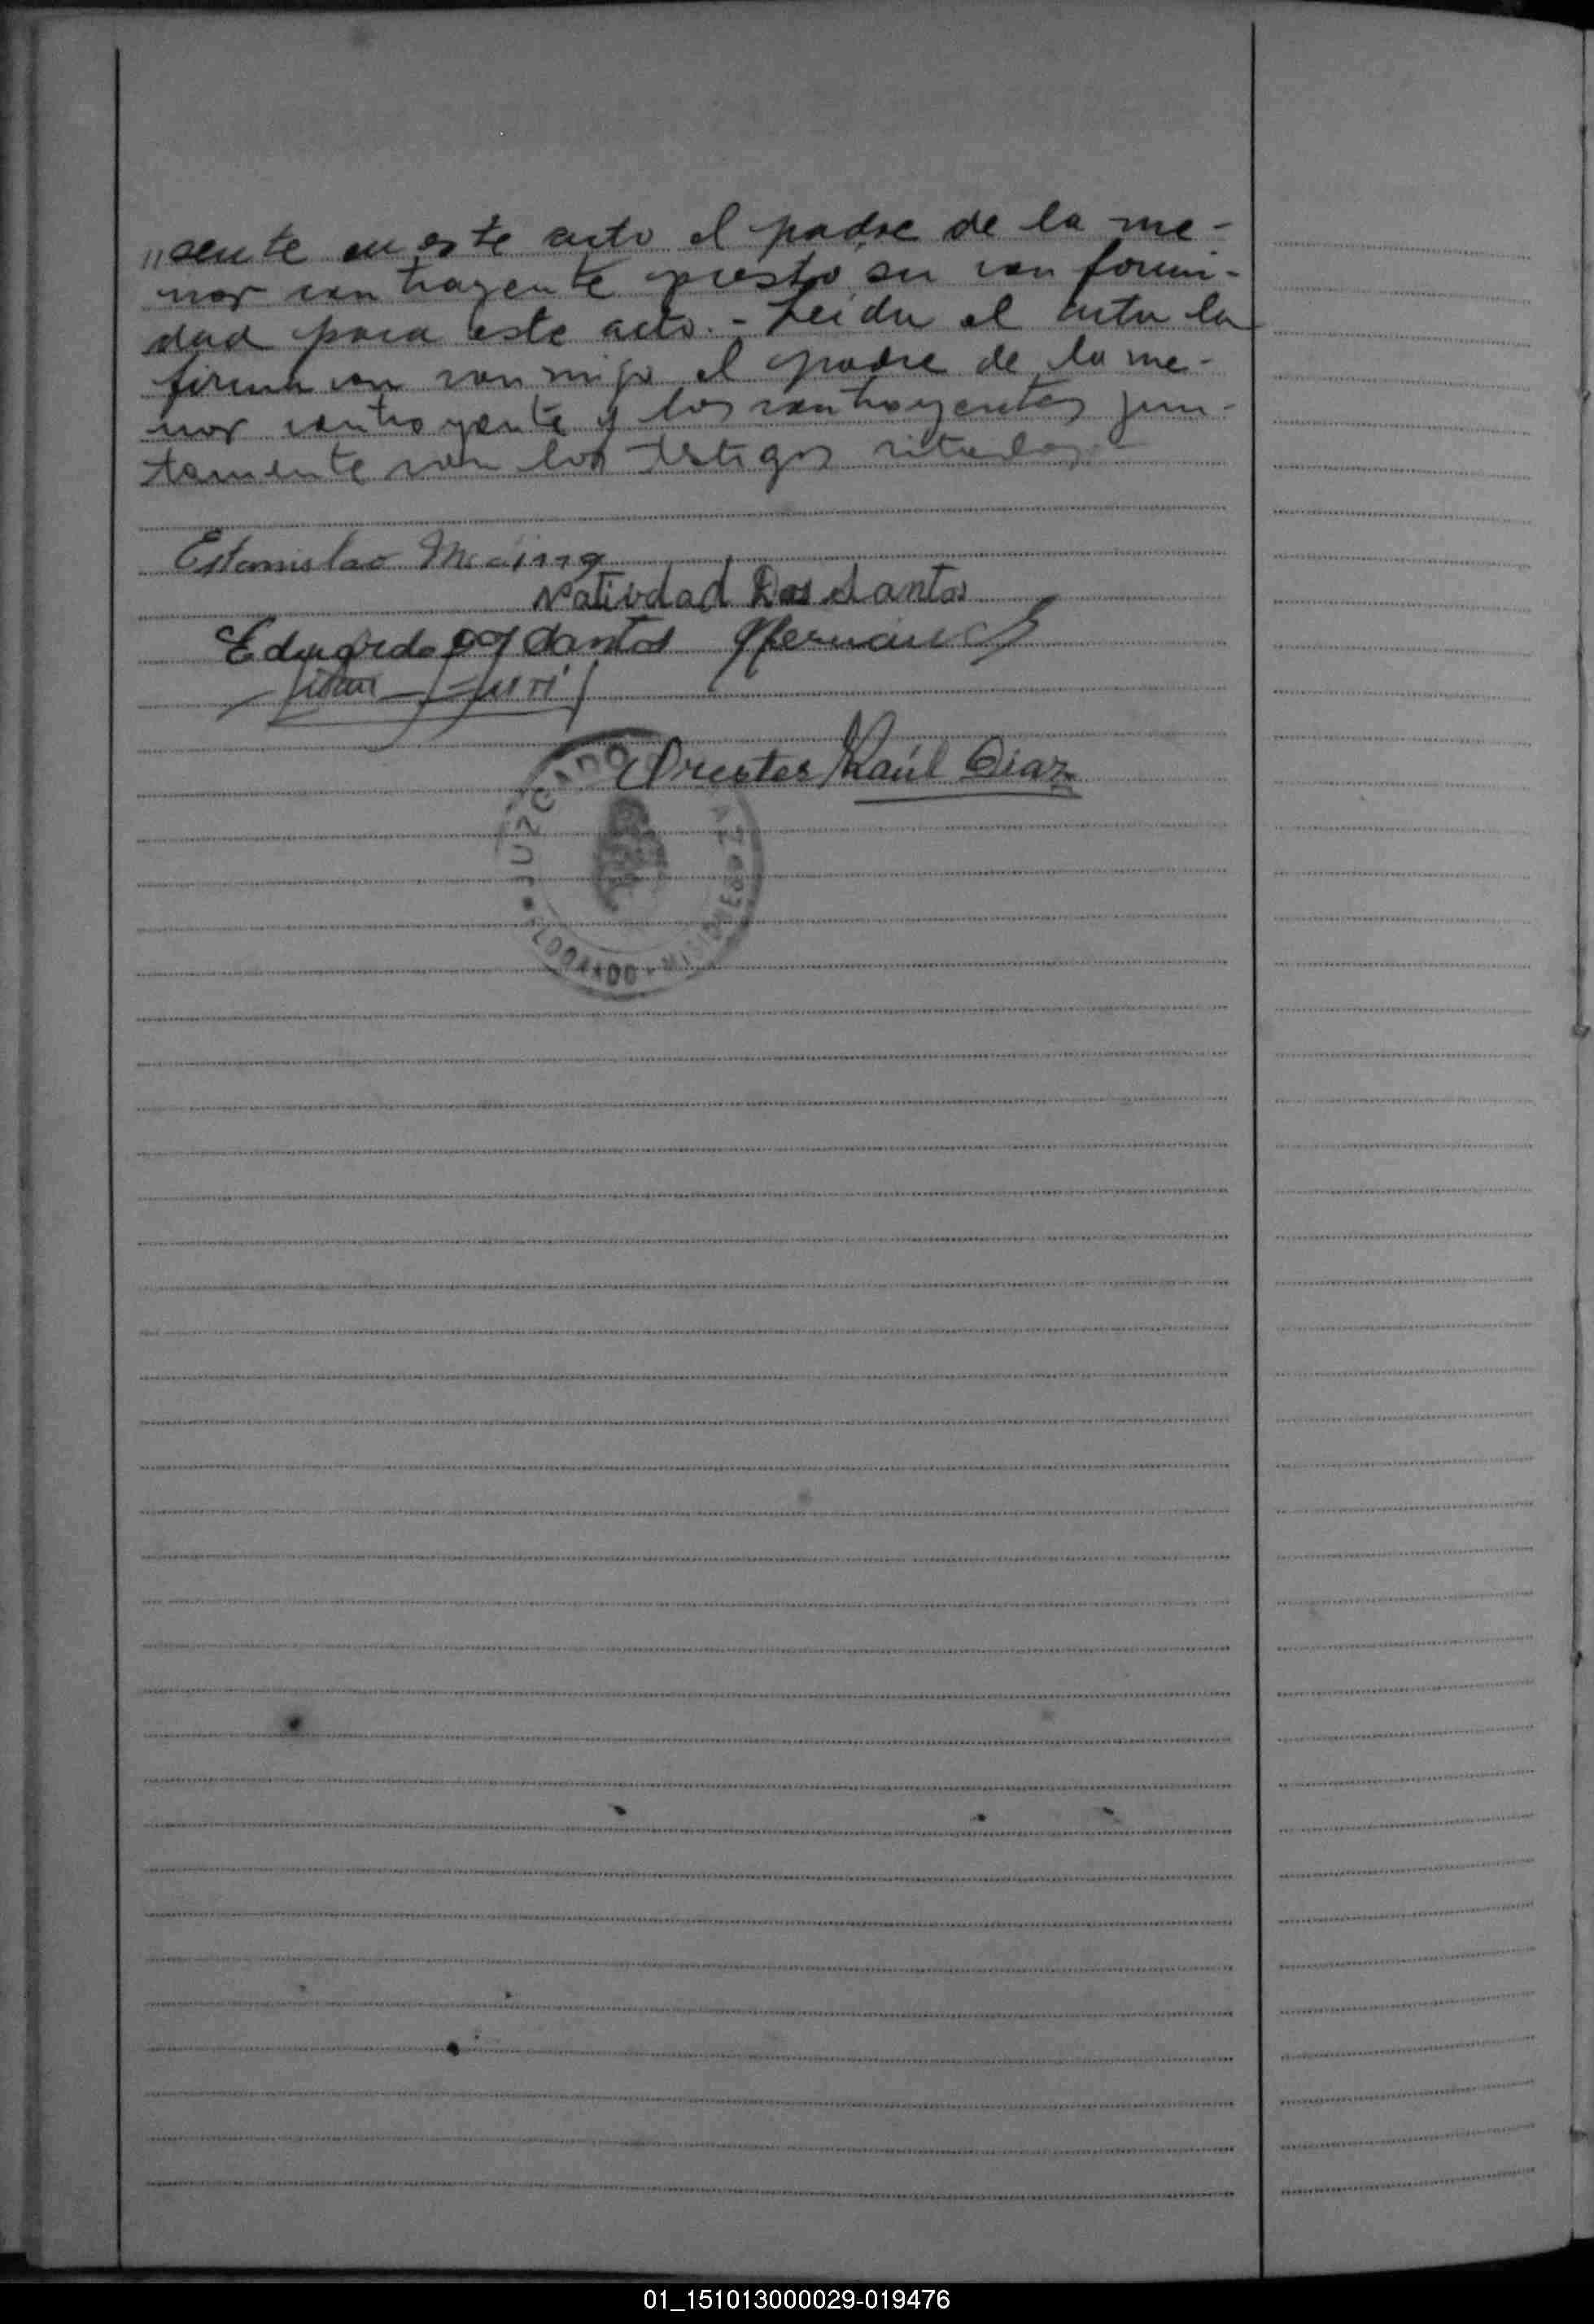 "sente en este acto el padre de la me-
nor contrayente prestó su conformi-
dad para este acto.- Leida el acta la
firman conmigo el padre de la me-
nor contrayente y los contrayentes jun-
tamente con los testigos citados
Estanislao
Natividad Dos Santos
Eduardo Dos Santos
Orestes Raúl Diaz
JUZGADO
ELDORADO · MISIONES
01_151013000029-019476